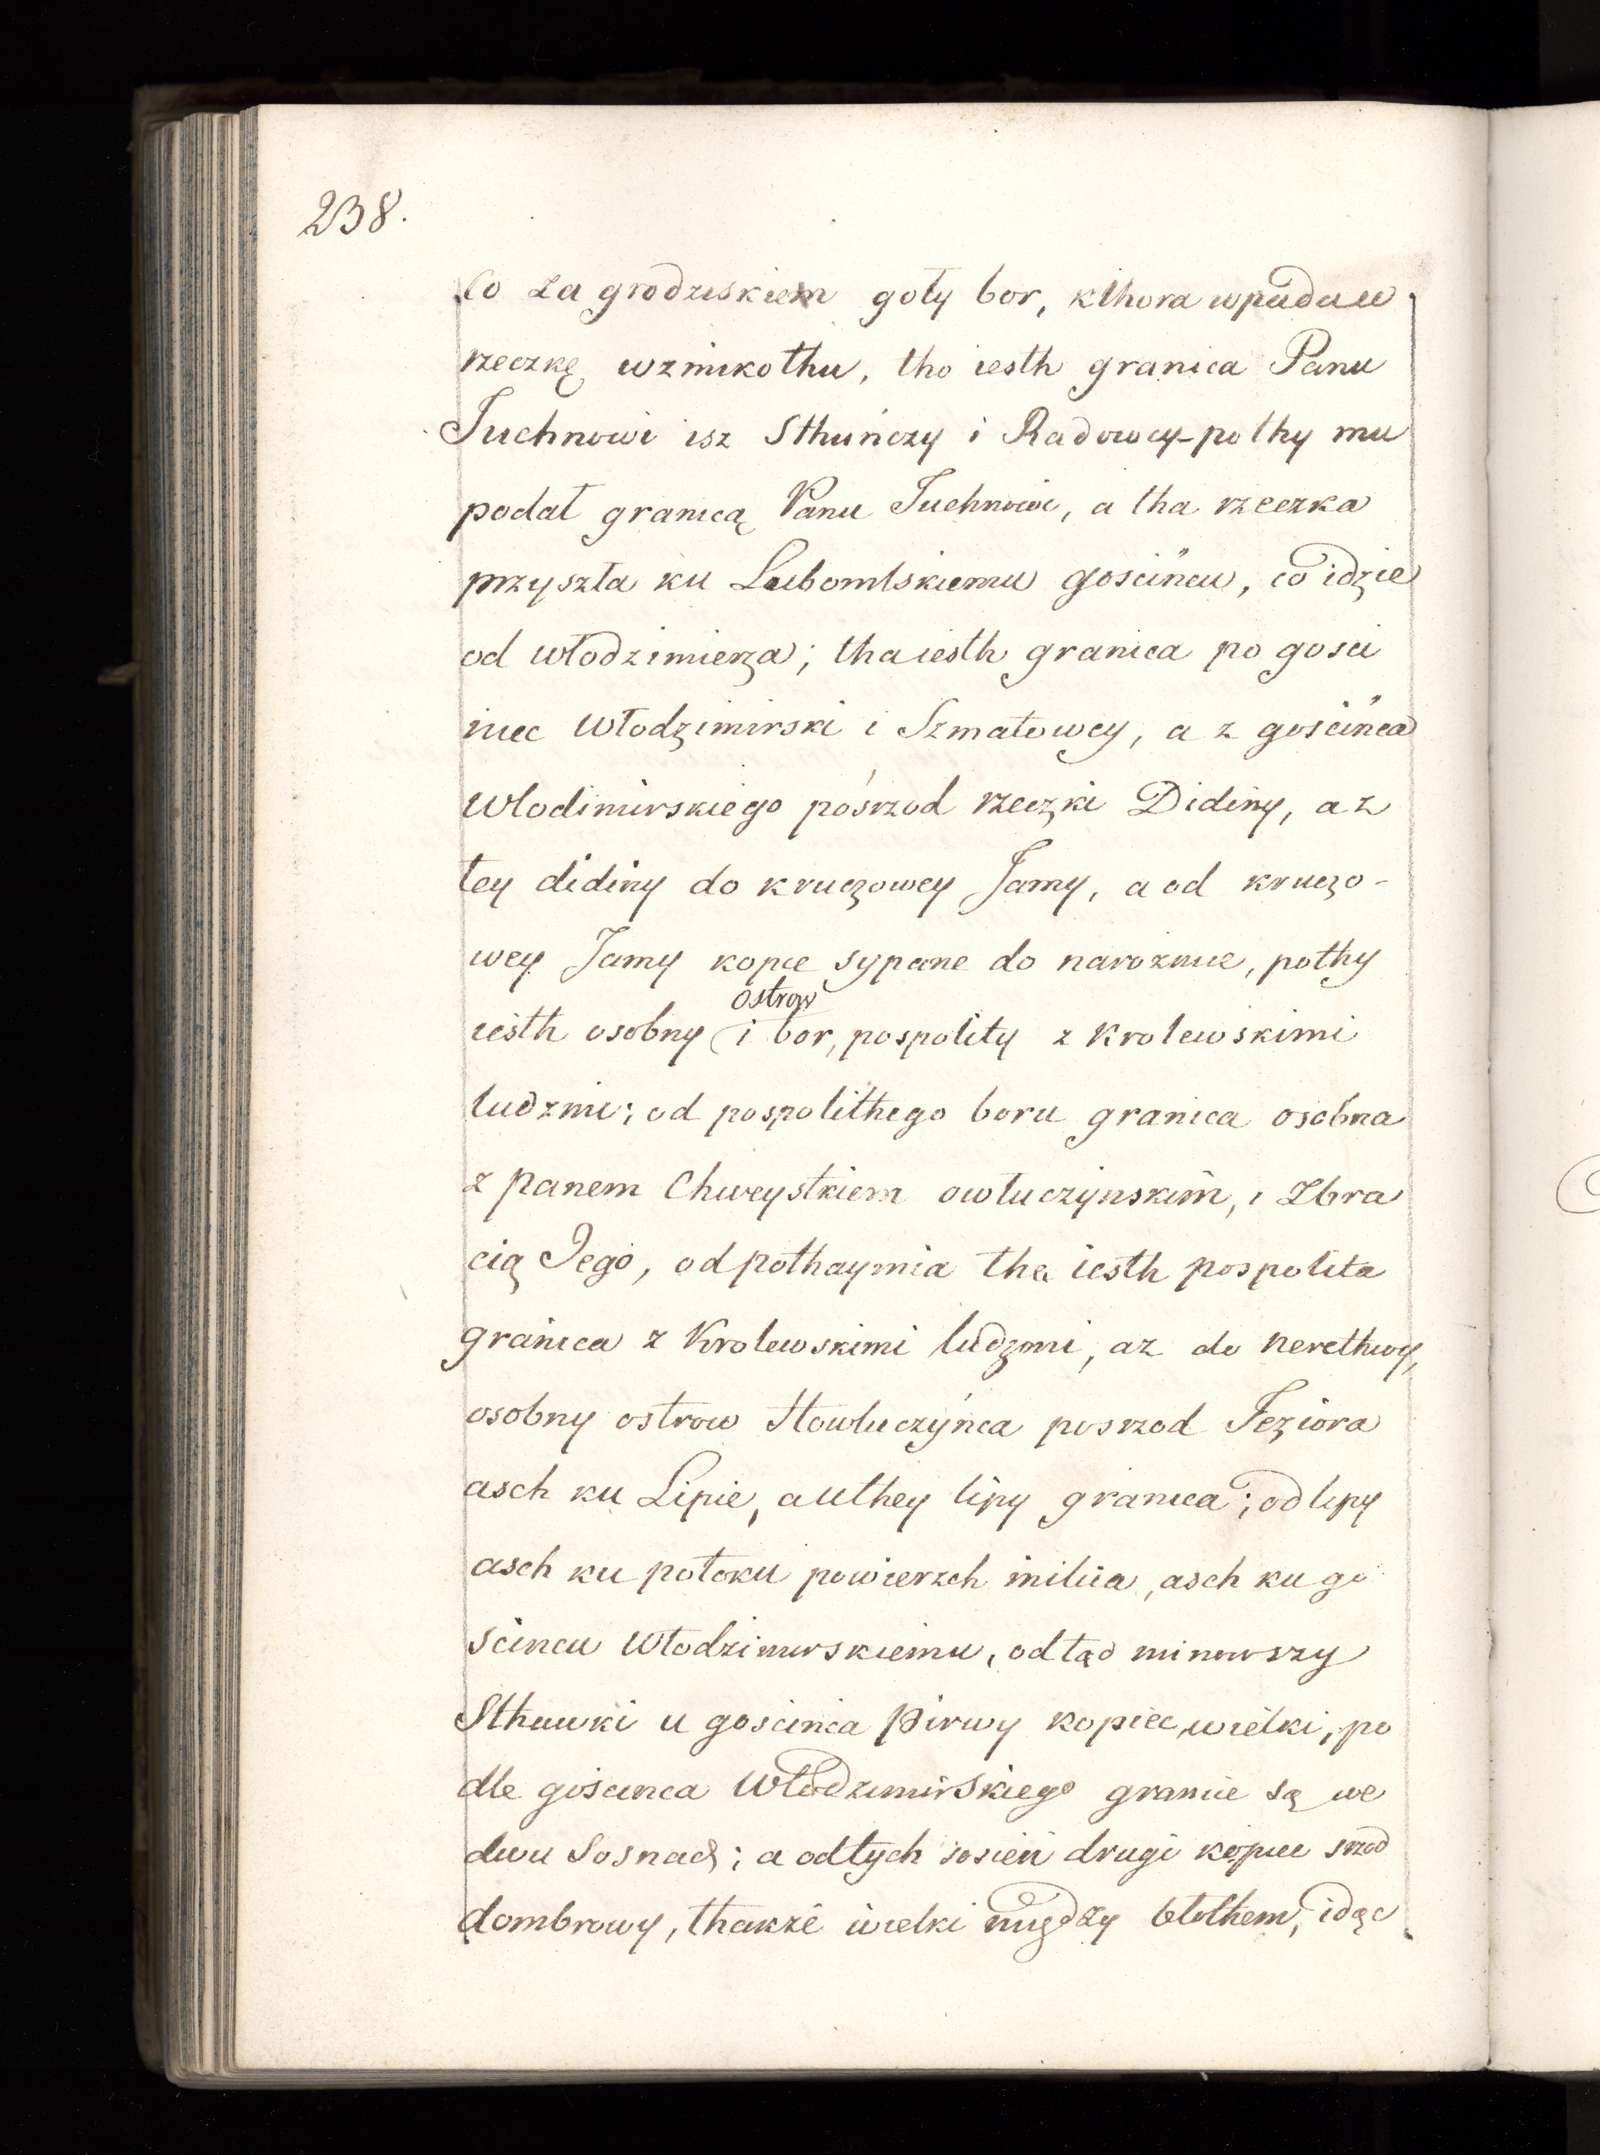 238.
co za grodziskiem goły bor, kthora wpada w
rzeczkę wznikothu, tho iesth granica Panu
Juchnowi isz Sthuńczy i Radowcy-pothy mu
podał granicą Panu Juchnowi, a tha rzeczka
przyszła ku Lubomlskiemu gościńcu, co idzie
od włodzimierza; tha iesth granica po gosci
niec Włodzimirski i Szmatowey, a z gościńca
Wlodimirskiego pośrzod rzeczki Didiny, a z
tey didiny do kruczowey Jamy, a od kruczo-
wey Jamy kopce sypane do narożnice, pothy
ostrow
iesth osobny i bor, pospolity z Krolewskimi
ludzmi; od pospolithego boru granica osobna
z panem Chweystkiem owłuczynskim, i Zbra
cią Jego, od pothaymia tha iesth pospolita
granica z Krolewskimi ludzmi, az do nerethwy,
osobny ostrow Howluczyńca posrzod Jeziora
asch ku Lipie, a uthey lipy granica; od lipy
asch ku potoku powierzch milica, asch ku go
scincu Włodzimirskiemu, odtąd minowszy
Sthawki u goscinca pirwy kopiec wielki, po
dle goscinca Włodzimirskiego granice są we
dwu Sosnach; a odtych sosien drugi kopiec srzod
dombrowy, thakże wielki między blothem, idąc